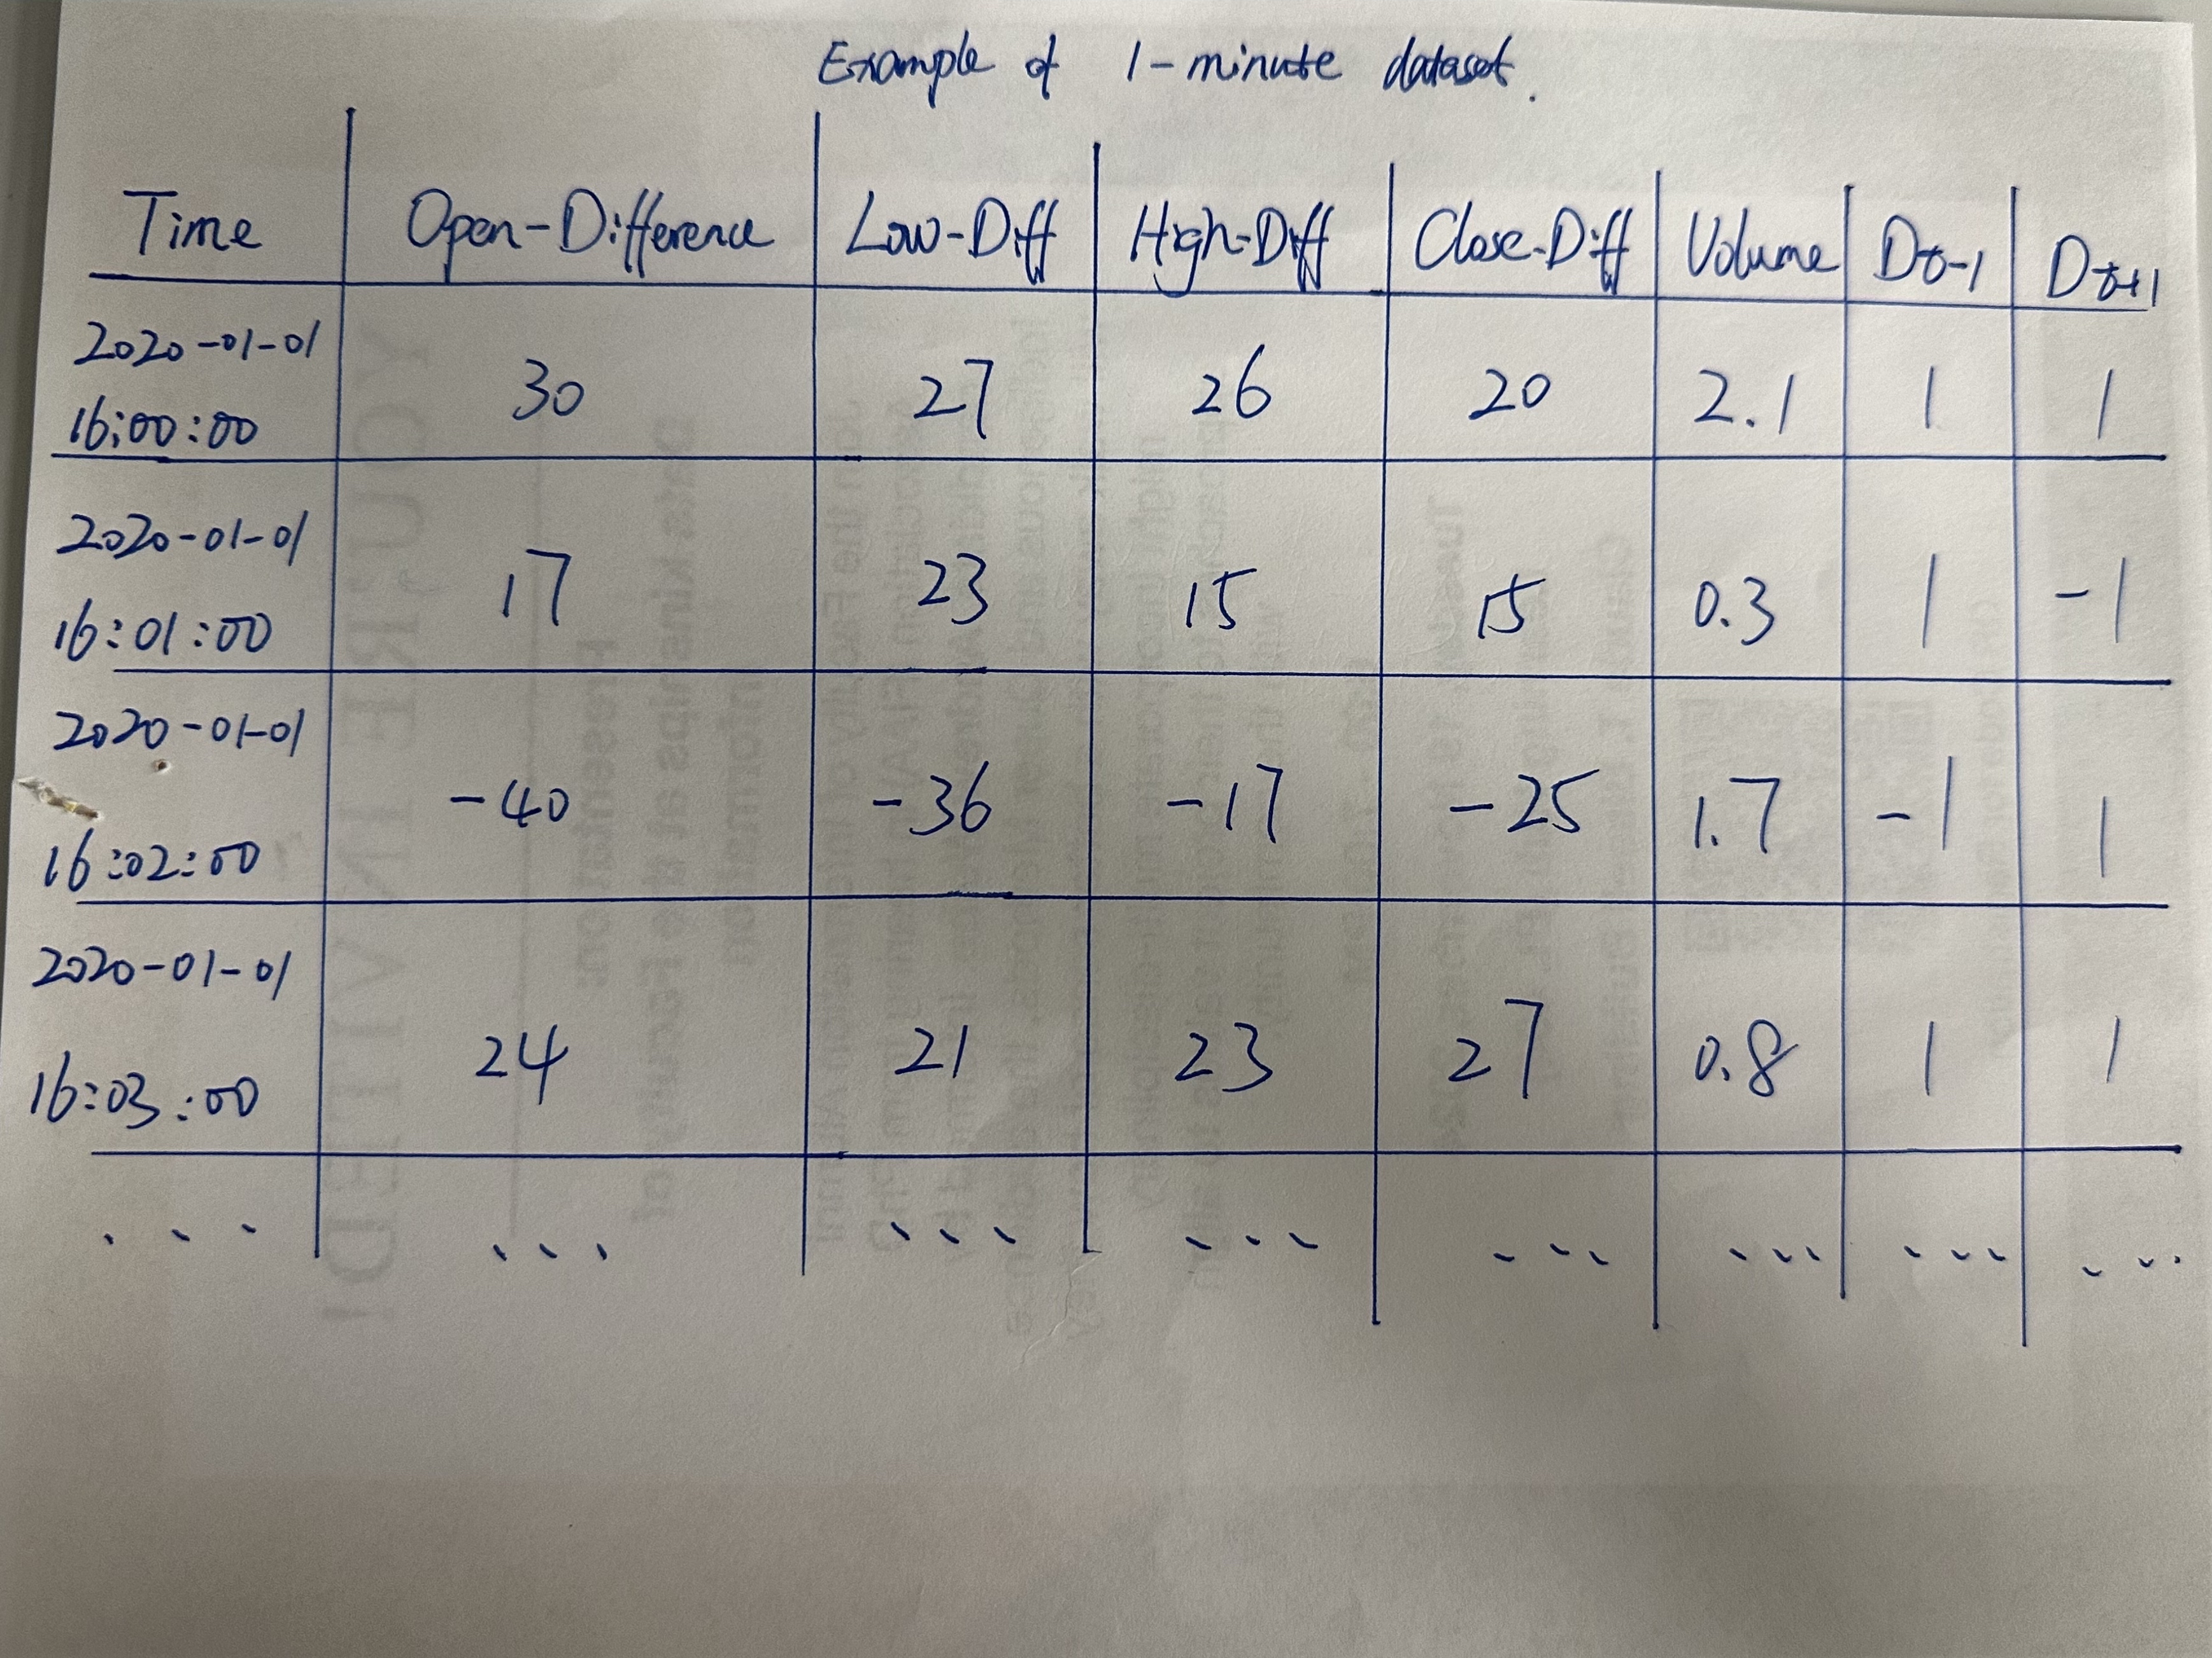 Example of 1-minute dataset.
Time Open-Difference Low-Diff High-Diff Close-Diff Volume Dt-1 Dt+1
2020-01-01
16:00:00 30 27 26 20 2.1 1 1
2020-01-01
16:01:00 17 23 15 15 0.3 1 -1
2020-01-01
16:02:00 -40 -36 -17 -25 1.7 -1 1
2020-01-01
16:03:00 24 21 23 27 0.8 1 1
... ... ... ... ... ... ... ...